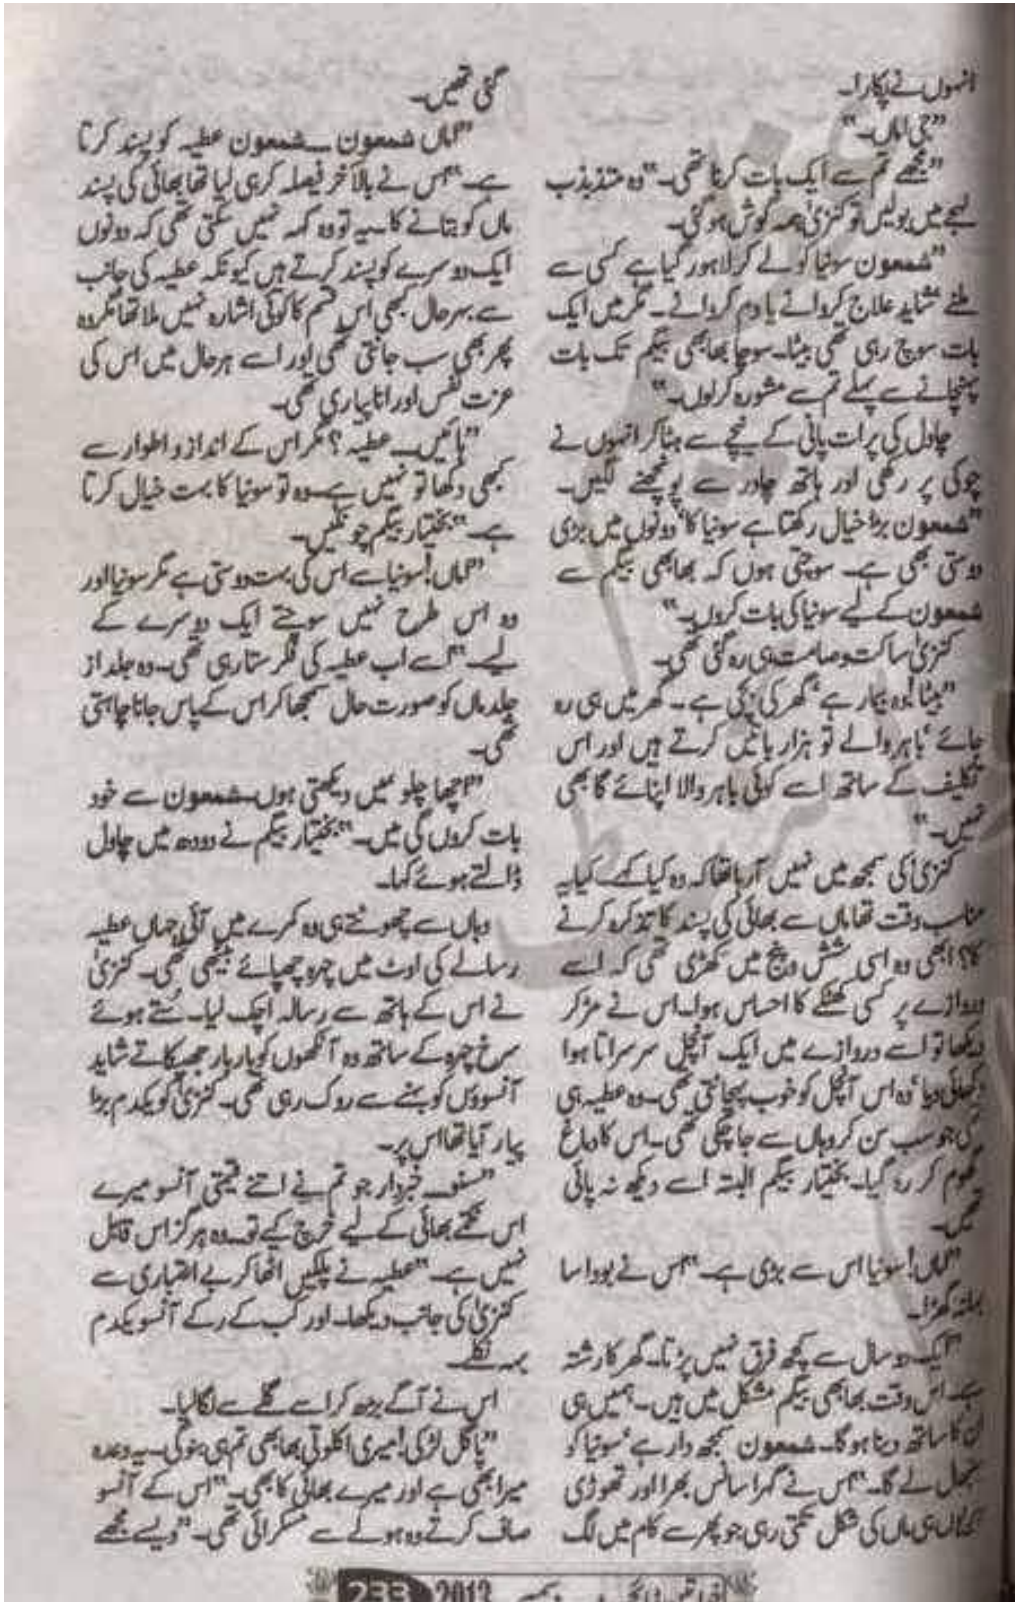 انہوں نے پکارا۔
"جی اماں۔"
"مجھے تم سے ایک بات کرنا تھی۔" وہ متذبذب
لہجے میں بولیں تو کنزیٰ ہمہ گوش ہو گئی۔
"شمعون سونیا کو لے کر لاہور گیا ہے کسی سے
ملنے شاید علاج کروانے یا دم کروانے۔ مگر میں ایک
بات سوچ رہی تھی بیٹا۔ سوچا بھابھی بیگم تک بات
پہنچانے سے پہلے تم سے مشورہ کر لوں۔"
چاول کی پرات پانی کے نیچے سے ہٹا کر انہوں نے
چوکی پر رکھی اور ہاتھ چادر سے پونچھنے لگیں۔
"شمعون بڑا خیال رکھتا ہے سونیا کا' دونوں میں بڑی
دوستی بھی ہے۔ سوچتی ہوں کہ بھابھی بیگم سے
شمعون کے لیے سونیا کی بات کروں۔"
کنزیٰ ساکت و صامت ہی رہ گئی تھی۔
"بیٹا! وہ بیمار ہے' گھر کی بچی ہے۔ گھر میں ہی رہ
جائے' باہر والے تو ہزار باتیں کرتے ہیں اور اس
تکلیف کے ساتھ اسے کوئی باہر والا اپنائے گا بھی
نہیں۔"
کنزیٰ کی سمجھ میں نہیں آ رہا تھا کہ وہ کیا کہے۔ کیا یہ
مناسب وقت تھا ماں سے بھائی کی پسند کا تذکرہ کرنے
کا؟ ابھی وہ اسی شش و پنج میں کھڑی تھی کہ اسے
دروازے پر کسی کھٹکے کا احساس ہوا۔ اس نے مڑ کر
دیکھا تو اسے دروازے میں ایک آنچل سرسراتا ہوا
دکھائی دیا' وہ اس آنچل کو خوب پہچانتی تھی۔ وہ عطیہ ہی
تھی جو سب سن کر وہاں سے جا چکی تھی۔ اس کا دماغ
گھوم کر رہ گیا۔ بختیار بیگم البتہ اسے دیکھ نہ پائی
تھیں۔
"اماں! سونیا اس سے بڑی ہے۔" اس نے بودا سا
بہانہ گھڑا۔
"ایک دو سال سے کچھ فرق نہیں پڑتا۔ گھر کا رشتہ
ہے۔ اس وقت بھابھی بیگم مشکل میں ہیں۔ ہمیں ہی
ان کا ساتھ دینا ہو گا۔ شمعون سمجھ دار ہے' سونیا کو
سنبھال لے گا۔" اس نے گہرا سانس بھرا اور تھوڑی
ہی ماں کی شکل تکتی رہی جو پھر سے کام میں لگ
گئی تھیں۔
"اماں شمعون ـــ شمعون عطیہ کو پسند کرتا
ہے۔" اس نے بالآخر فیصلہ کر ہی لیا تھا بھائی کی پسند
ماں کو بتانے کا۔ یہ تو وہ کہہ نہیں سکتی تھی کہ دونوں
ایک دوسرے کو پسند کرتے ہیں کیونکہ عطیہ کی جانب
سے بہرحال کبھی اس قسم کا کوئی اشارہ نہیں ملا تھا مگر وہ
پھر بھی سب جانتی تھی اور اسے ہر حال میں اس کی
عزت نفس اور انا پیاری تھی۔
"ہائیں۔ عطیہ؟ مگر اس کے انداز و اطوار سے
کبھی دکھا تو نہیں ہے۔ وہ تو سونیا کا بہت خیال کرتا
ہے۔" بختیار بیگم چونکیں۔
"اماں! سونیا سے اس کی بہت دوستی ہے مگر سونیا اور
وہ اس طرح نہیں سوچتے ایک دوسرے کے
لیے۔" اسے اب عطیہ کی فکر ستا رہی تھی۔ وہ جلد از
جلد ماں کو صورت حال سمجھا کر اس کے پاس جانا چاہتی
تھی۔
"اچھا چلو میں دیکھتی ہوں۔ شمعون سے خود
بات کروں گی میں۔" بختیار بیگم نے دودھ میں چاول
ڈالتے ہوئے کہا۔
وہاں سے چھوٹتے ہی وہ کمرے میں آئی جہاں عطیہ
رسالے کی اوٹ میں چہرہ چھپائے بیٹھی تھی۔ کنزیٰ
نے اس کے ہاتھ سے رسالہ اچک لیا۔ ستے ہوئے
سرخ چہرہ کے ساتھ وہ آنکھوں کو بار بار جھپکاتے شاید
آنسوؤں کو بہنے سے روک رہی تھی۔ کنزیٰ کو یکدم بڑا
پیار آیا تھا اس پر۔
"سنو۔ خبردار جو تم نے اتنے قیمتی آنسو میرے
اس نکمے بھائی کے لیے خرچ کیے تو۔ وہ ہرگز اس قابل
نہیں ہے۔" عطیہ نے پلکیں اٹھا کر بے اختیاری سے
کنزیٰ کی جانب دیکھا۔ اور کب کے رکے آنسو یکدم
بہہ نکلے۔
اس نے آگے بڑھ کر اسے گلے سے لگا لیا۔
"پاگل لڑکی! میری اکلوتی بھابھی تم ہی بنو گی۔ یہ وعدہ
میرا بھی ہے اور میرے بھائی کا بھی۔" اس کے آنسو
صاف کرتے وہ ہولے سے مسکرائی تھی۔ "ویسے مجھے
233 2012